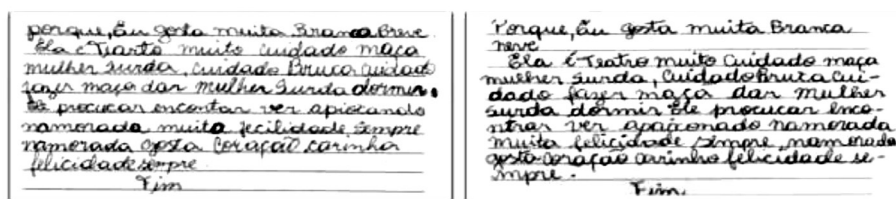 porque, Eu gosta muita Branca Breve.
Ela é Tiarto muito cuidado maça
mulher surda, cuidado Bruca cuidado
fazer maça dar mulher surda dormir.
Ele procucar encontar ver apiocando
namorada muita fecilidade sempre
namorada gosta coração carinho
felicidade sempre.
Fim
Porque, Eu gosta muita Branca
neve
Ela é Teatro muito cuidado maça
mulher surda, cuidado Bruxa cui-
dado fazer maça dar mulher
surda dormir Ele procucar enco-
ntrar ver apaiconado namorada
muita felicidade sempre, namorada
gosta coração carinho felicidade se-
mpre.
Fim.